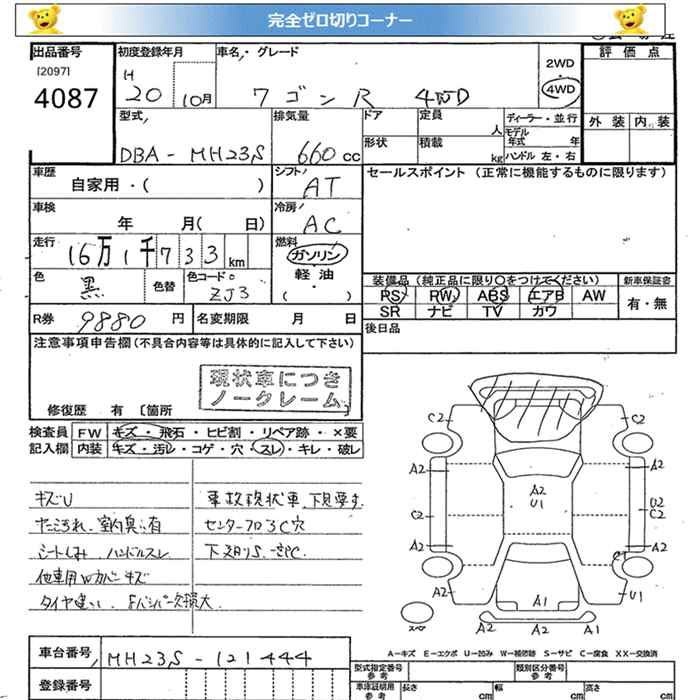 完全ゼロ切りコーナー
出品番号
[2097]
4087
初度登録年月
H
20 10月
車名・グレード
ワゴンR 4WD
2WD
・
4WD
評価点
外装 内装
型式
DBA-MH23S
排気量
660 cc
ドア
形状
定員
人
積載
kg
ディーラー・並行
モデル年式 年
ハンドル 左・右
車歴
自家用・( )
シフト
AT
セールスポイント (正常に機能するものに限ります)
車検
年 月( 日)
冷房
AC
走行
16万1千733km
燃料
ガソリン
軽油
( )
色
黒
色替
色コード
ZJ3
装備品 (純正品に限り○をつけてください)
PS PW ABS エアB AW
SR ナビ TV カワ
新車保証書
有・無
R券
9880 円
名変期限 月 日
後日品
注意事項申告欄(不具合内容等は具体的に記入して下さい)
現状車につき
ノークレーム
修復歴 有 〔箇所
検査員
記入欄
FW キズ・飛石・ヒビ割・リペア跡・×要
内装 キズ・汚レ・コゲ・穴・スレ・キレ・破レ
キズU
事故現状車、下見要す
センターフロアC穴
シートしみ ハンドルスレ
下廻りS
C2
C2
A2
A2
A2
U1
U2
C2
C2
A2
A2
C1
A2
U1
A1
A2 A2 A1
スペア
A-キズ E-エクボ U-凹み W-補修跡 S-サビ C-腐食 XX-交換済
車台番号
MH23S-121444
登録番号
型式指定番号
参考
類別区分番号
参考
車庫証明用
参考
長さ cm
幅 cm
高さ cm